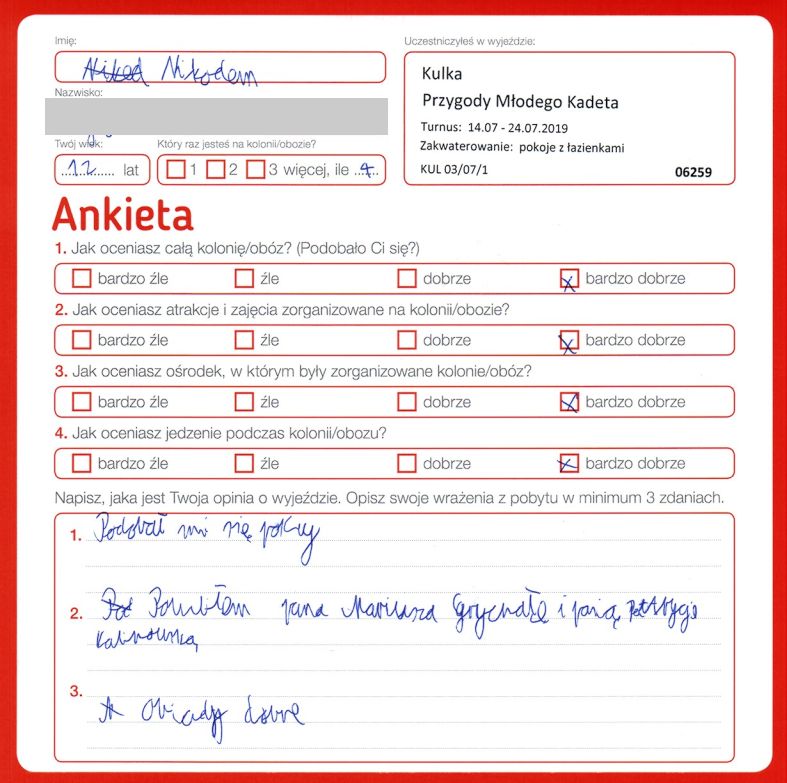 Imię:
Nikodem
Uczestniczyłeś w wyjeździe:
Kulka
Przygody Młodego Kadeta
Turnus: 14.07 - 24.07.2019
Zakwaterowanie: pokoje z łazienkami
KUL 03/07/1
06259
Nazwisko:
Twój wiek:
12 lat
Który raz jesteś na kolonii/obozie?
1 2 3 więcej, ile 4
Ankieta
1. Jak oceniasz całą kolonię/obóz? (Podobało Ci się?)
bardzo źle źle dobrze bardzo dobrze
2. Jak oceniasz atrakcje i zajęcia zorganizowane na kolonii/obozie?
bardzo źle źle dobrze bardzo dobrze
3. Jak oceniasz ośrodek, w którym były zorganizowane kolonie/obóz?
bardzo źle źle dobrze bardzo dobrze
4. Jak oceniasz jedzenie podczas kolonii/obozu?
bardzo źle źle dobrze bardzo dobrze
Napisz, jaka jest Twoja opinia o wyjeździe. Opisz swoje wrażenia z pobytu w minimum 3 zdaniach.
1. Podobał mi się
2. pana Mariusza i panią
3. Obiady dobre